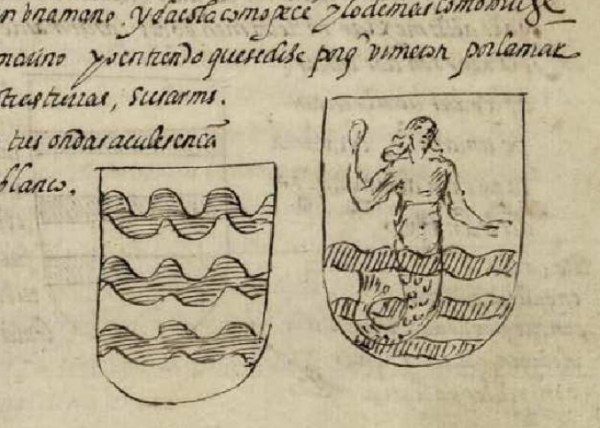 en una mano. y da cola como pece y lo demas como
marino y o entiendo que se dise porq̃ vineron por la mar
tras tierras, Sus armas.
tres ondas acules en cã
blanco.